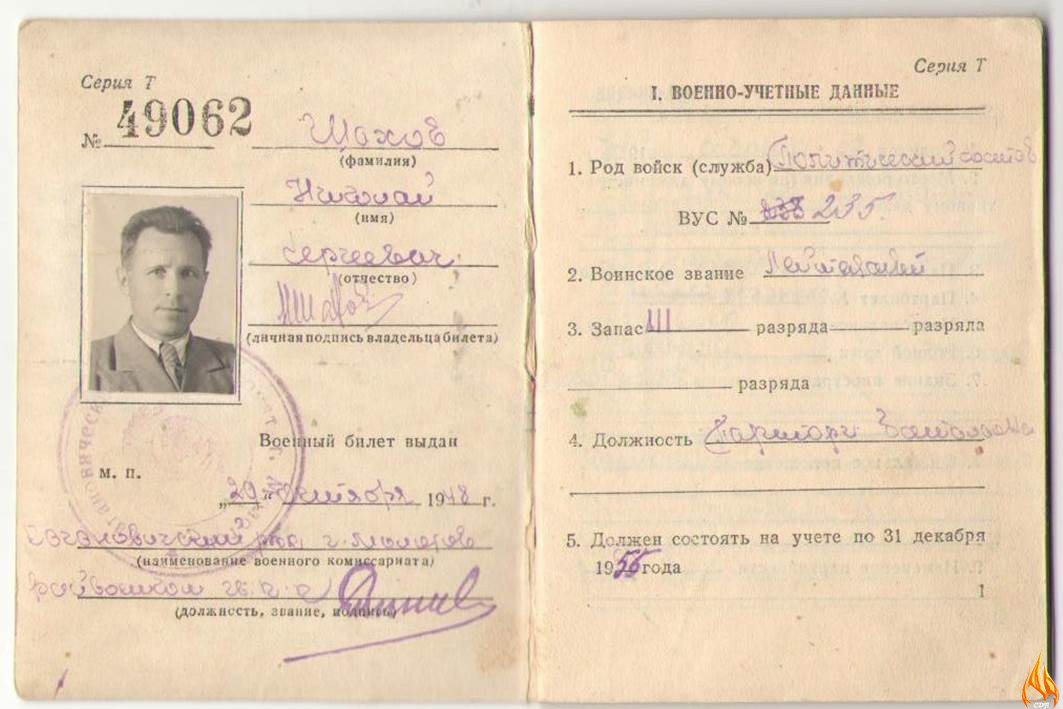 Серия Т
№ 49062
Шахов
(фамилия)
Николай
(имя)
Сергеевич
(отчество)
(личная подпись владельца билета)
Военный билет выдан
М. П.
„20“ октября 1948 г.
Кагановичский рвк г. Молотова
(наименование военного комиссариата)
райвоенком
(должность, звание, подпись)
Серия Т
I. ВОЕННО-УЧЕТНЫЕ ДАННЫЕ
1. Род войск (служба) Политический состав
ВУС № 235
2. Воинское звание Лейтенант
3. Запас III разряда разряда
разряда
4. Должность Парторг батальона
5. Должен состоять на учете по 31 декабря
1955 года
1